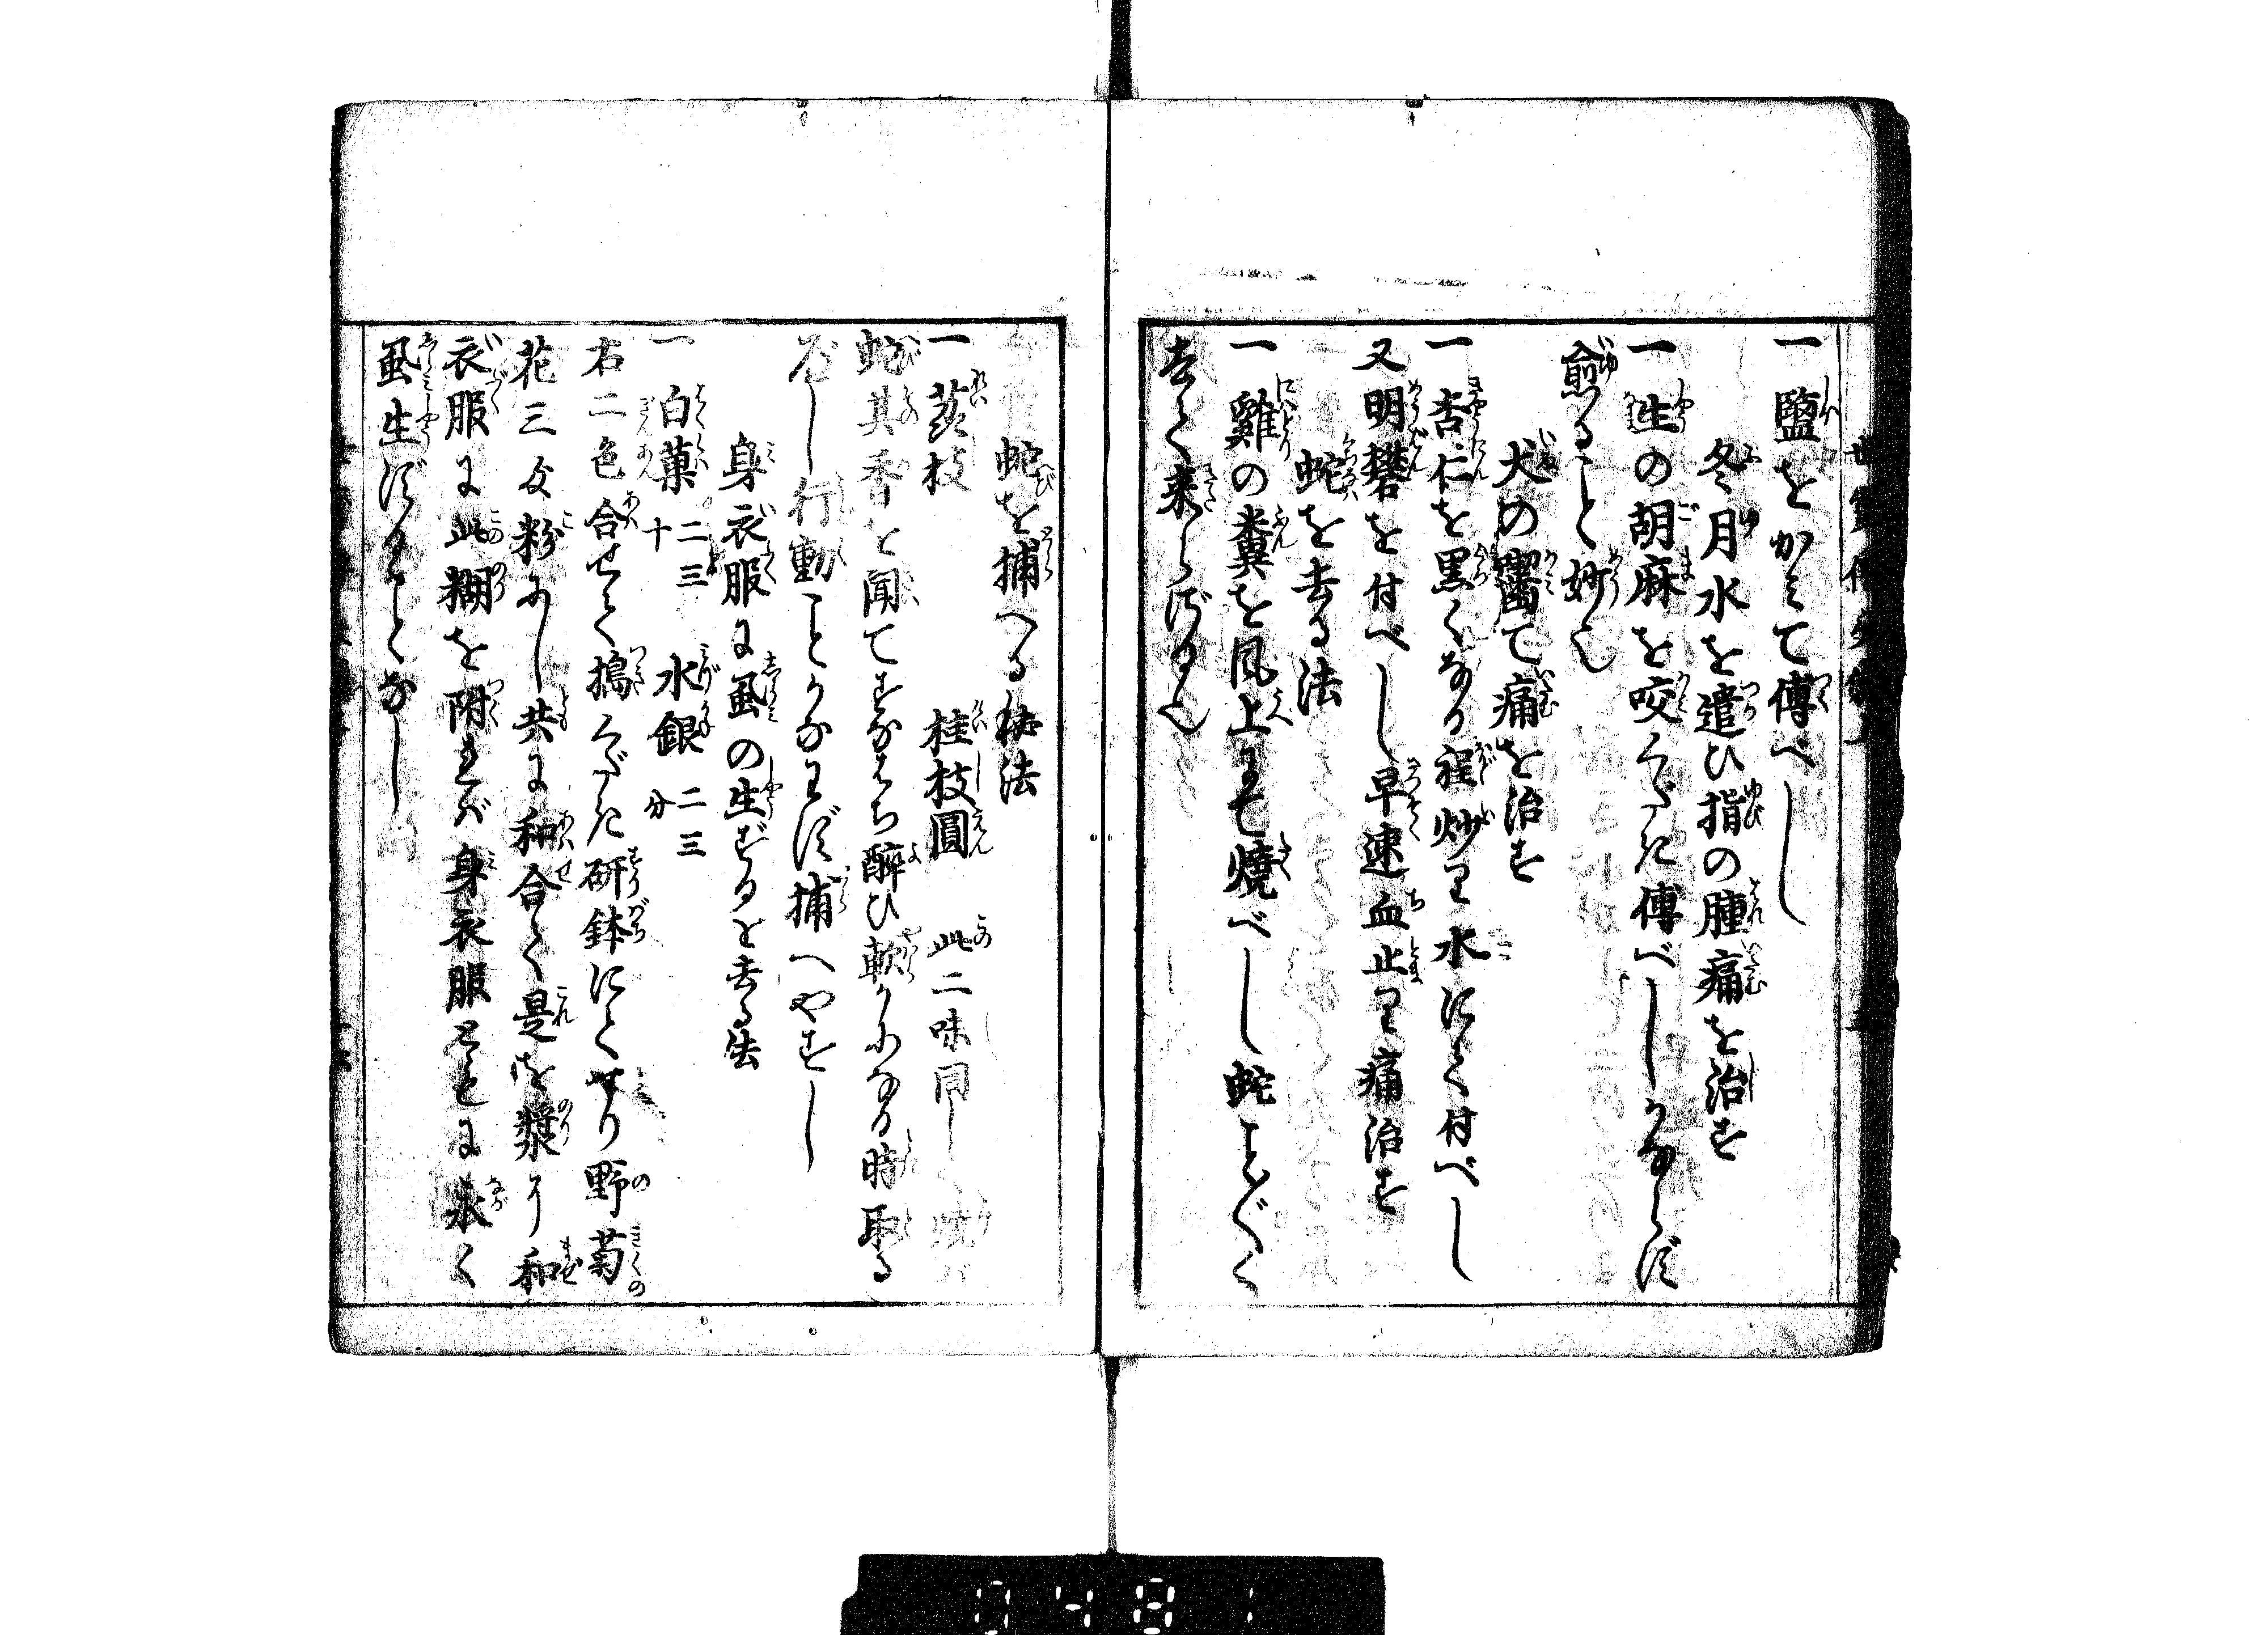 一 鹽をかミて傅べし
冬月水を遣ひ指の腫痛を治す
一 生の胡麻を咬くだき傅べしかならず
愈ること妙也
犬の齧て痛を治す
一 杏仁を黒くなる程炒り水にて付べし
又明礬を付べし早速血止り痛治す
蛇を去る法
一 雞の糞を風上にて焼べし蛇ことごとく
去て来らざる也
蛇を捕へる秘法
一 桂枝圓 此二味同じく
蛇其香を聞てすなはち酔ひ軟かになる時取る
べし行動ことかなハず捕へやすし
身衣服に虱の生ずるを去る法
一 白菓 二三十 水銀 二三分
右二色合せて搗くだき研鉢にてせり野菊
花三匁粉にし共に和合て是を漿り和
衣服に此糊を附れバ身衣服ともに永く
虱生ずることなし